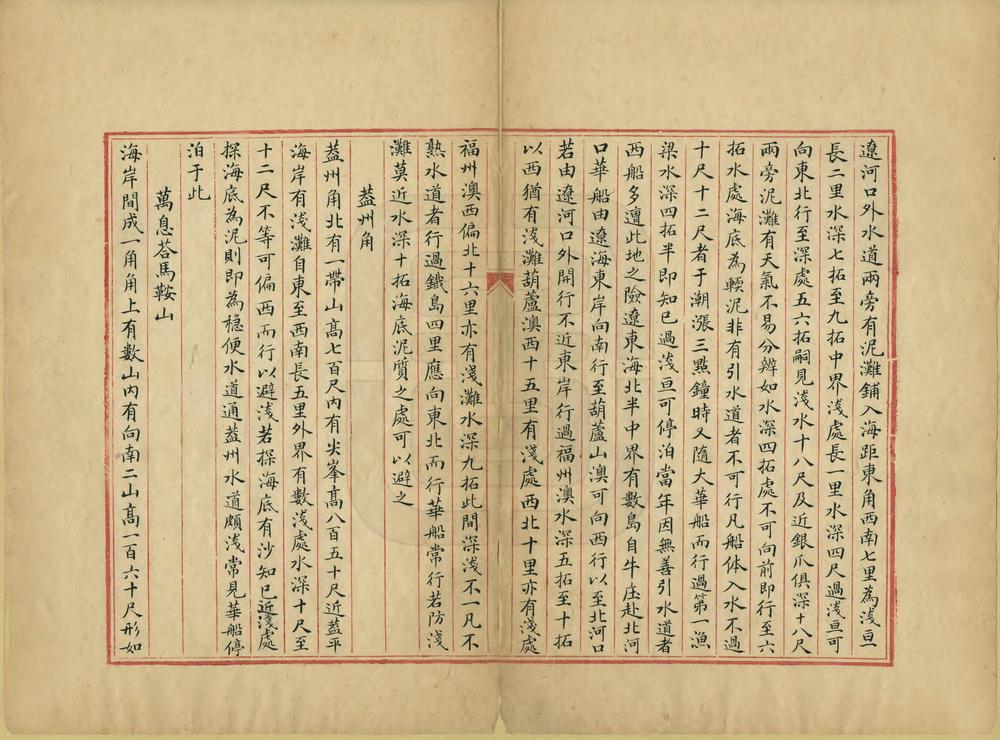 遼河口外水道兩旁有泥灘鋪入海距東角西南七里為淺亘
長二里水深七拓至九拓中界淺處長一里水深四尺過淺亘可
向東北行至深處五六拓嗣見淺水十八尺及近銀爪俱深十八尺
兩旁泥灘有天氣不易分辨如水深四拓處不可向前即行至六
拓水處海底為輭泥非有引水道者不可行凡船体入水不過
十尺十二尺者于潮漲三點鐘時又隨大華船而行過第一漁
梁水深四拓半即知已過淺亘可停泊當年因無善引水道者
西船多遭此地之險遼東海北半中界有數島自牛庄赴北河
口華船由遼海東岸向南行至葫蘆山澳可向西行以至北河口
若由遼河口外開行不近東岸行過福州澳水深五拓至十拓
以西猶有淺灘葫蘆澳西十五里有淺處西北十里亦有淺處
福州澳西偏北十六里亦有淺灘水深九拓此間深淺不一凡不
熟水道者行過鐵島四里應向東北而行華船常行若防淺
灘莫近水深十拓海底泥質之處可以避之
葢州角
葢州角北有一帶山高七百尺內有尖峯高八百五十尺近葢平
海岸有淺灘自東至西南長五里外界有數淺處水深十尺至
十二尺不等可偏西而行以避淺若探海底有沙知已近淺處
探海底為泥則即為穩便水道通葢州水道頗淺常見華船停
泊于此
萬息荅馬鞍山
海岸間成一角角上有數山內有向南二山高一百六十尺形如